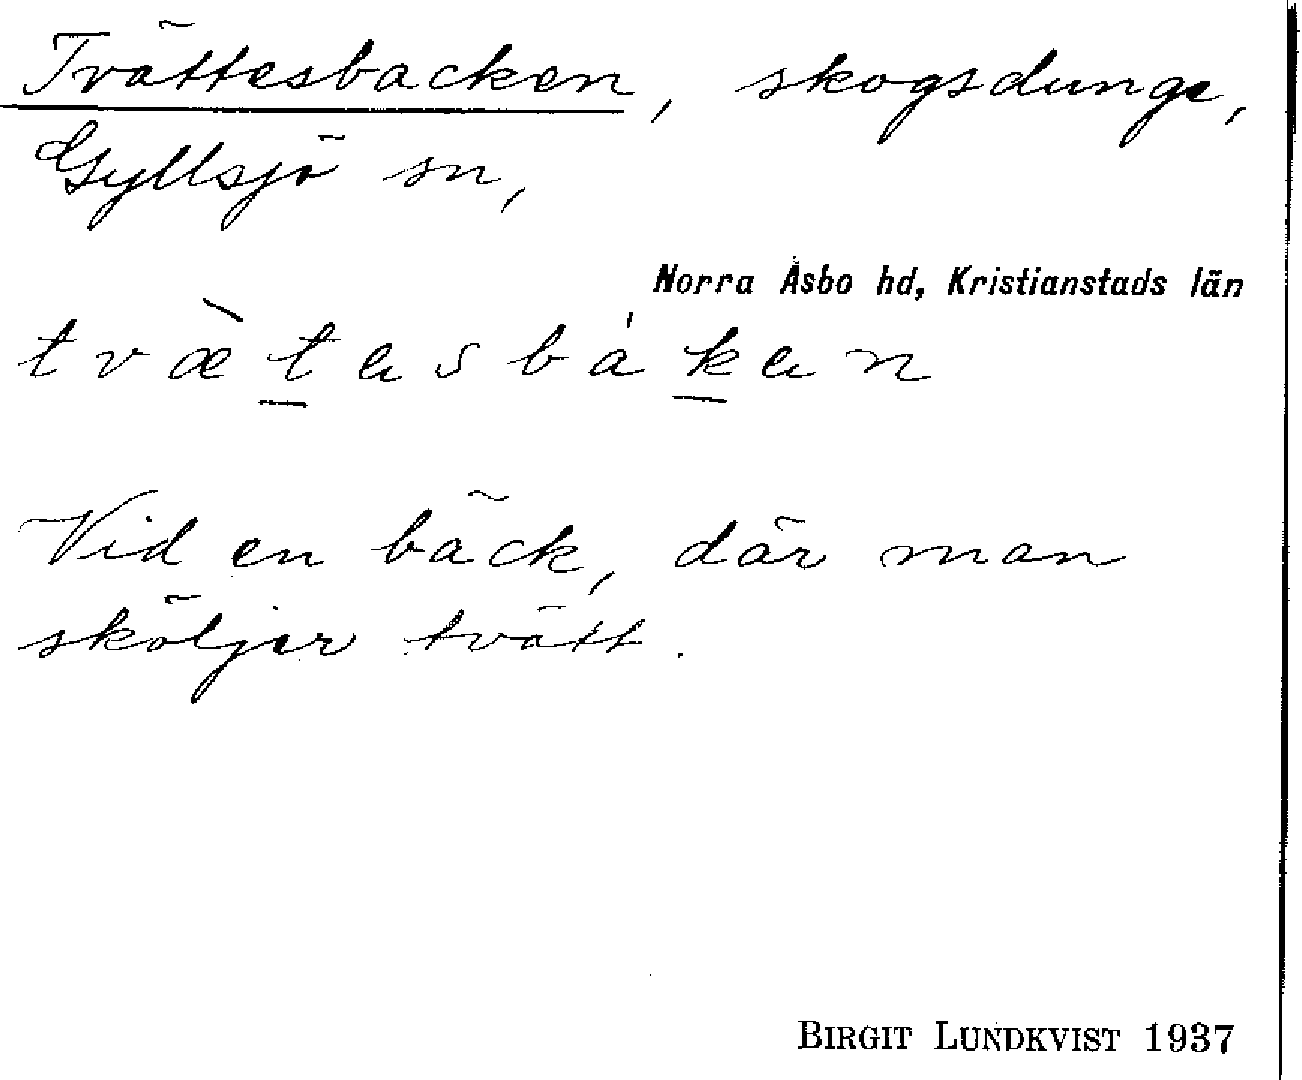 Tvättesbacken, skogsdunge,
Gyllsjö sn,
Norra Åsbo hd, Kristianstads län
tvæ̀tasbákan
Vid en bäck, där man
sköljer tvätt.
BIRGIT LUNDKVIST 1937